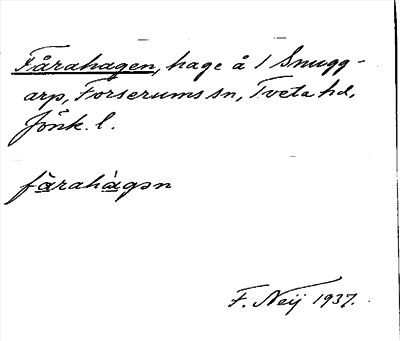 Fårahagen, hage å 1 Snugg-
arp, Forserums sn, Tveta hd,
Jönk. l.
fårahàgən
F. Neij 1937.